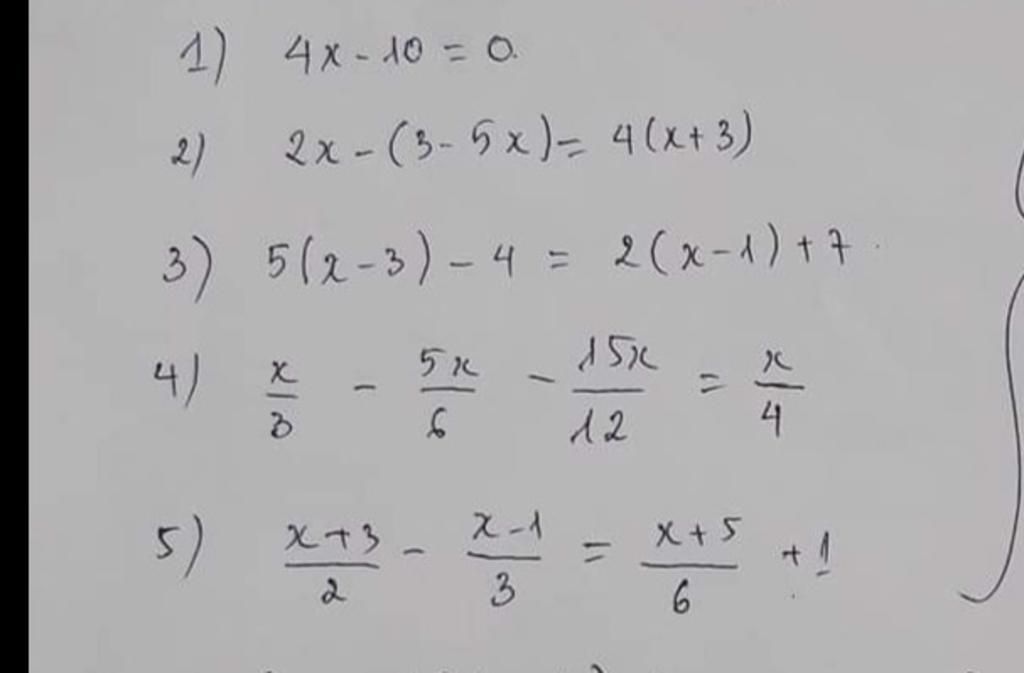 1) 4x - 10 = 0.
2) 2x - (3 - 5x) = 4(x + 3)
3) 5(x - 3) - 4 = 2(x - 1) + 7.
4) x/3 - 5x/6 - 15x/12 = x/4
5) (x + 3)/2 - (x - 1)/3 = (x + 5)/6 + 1